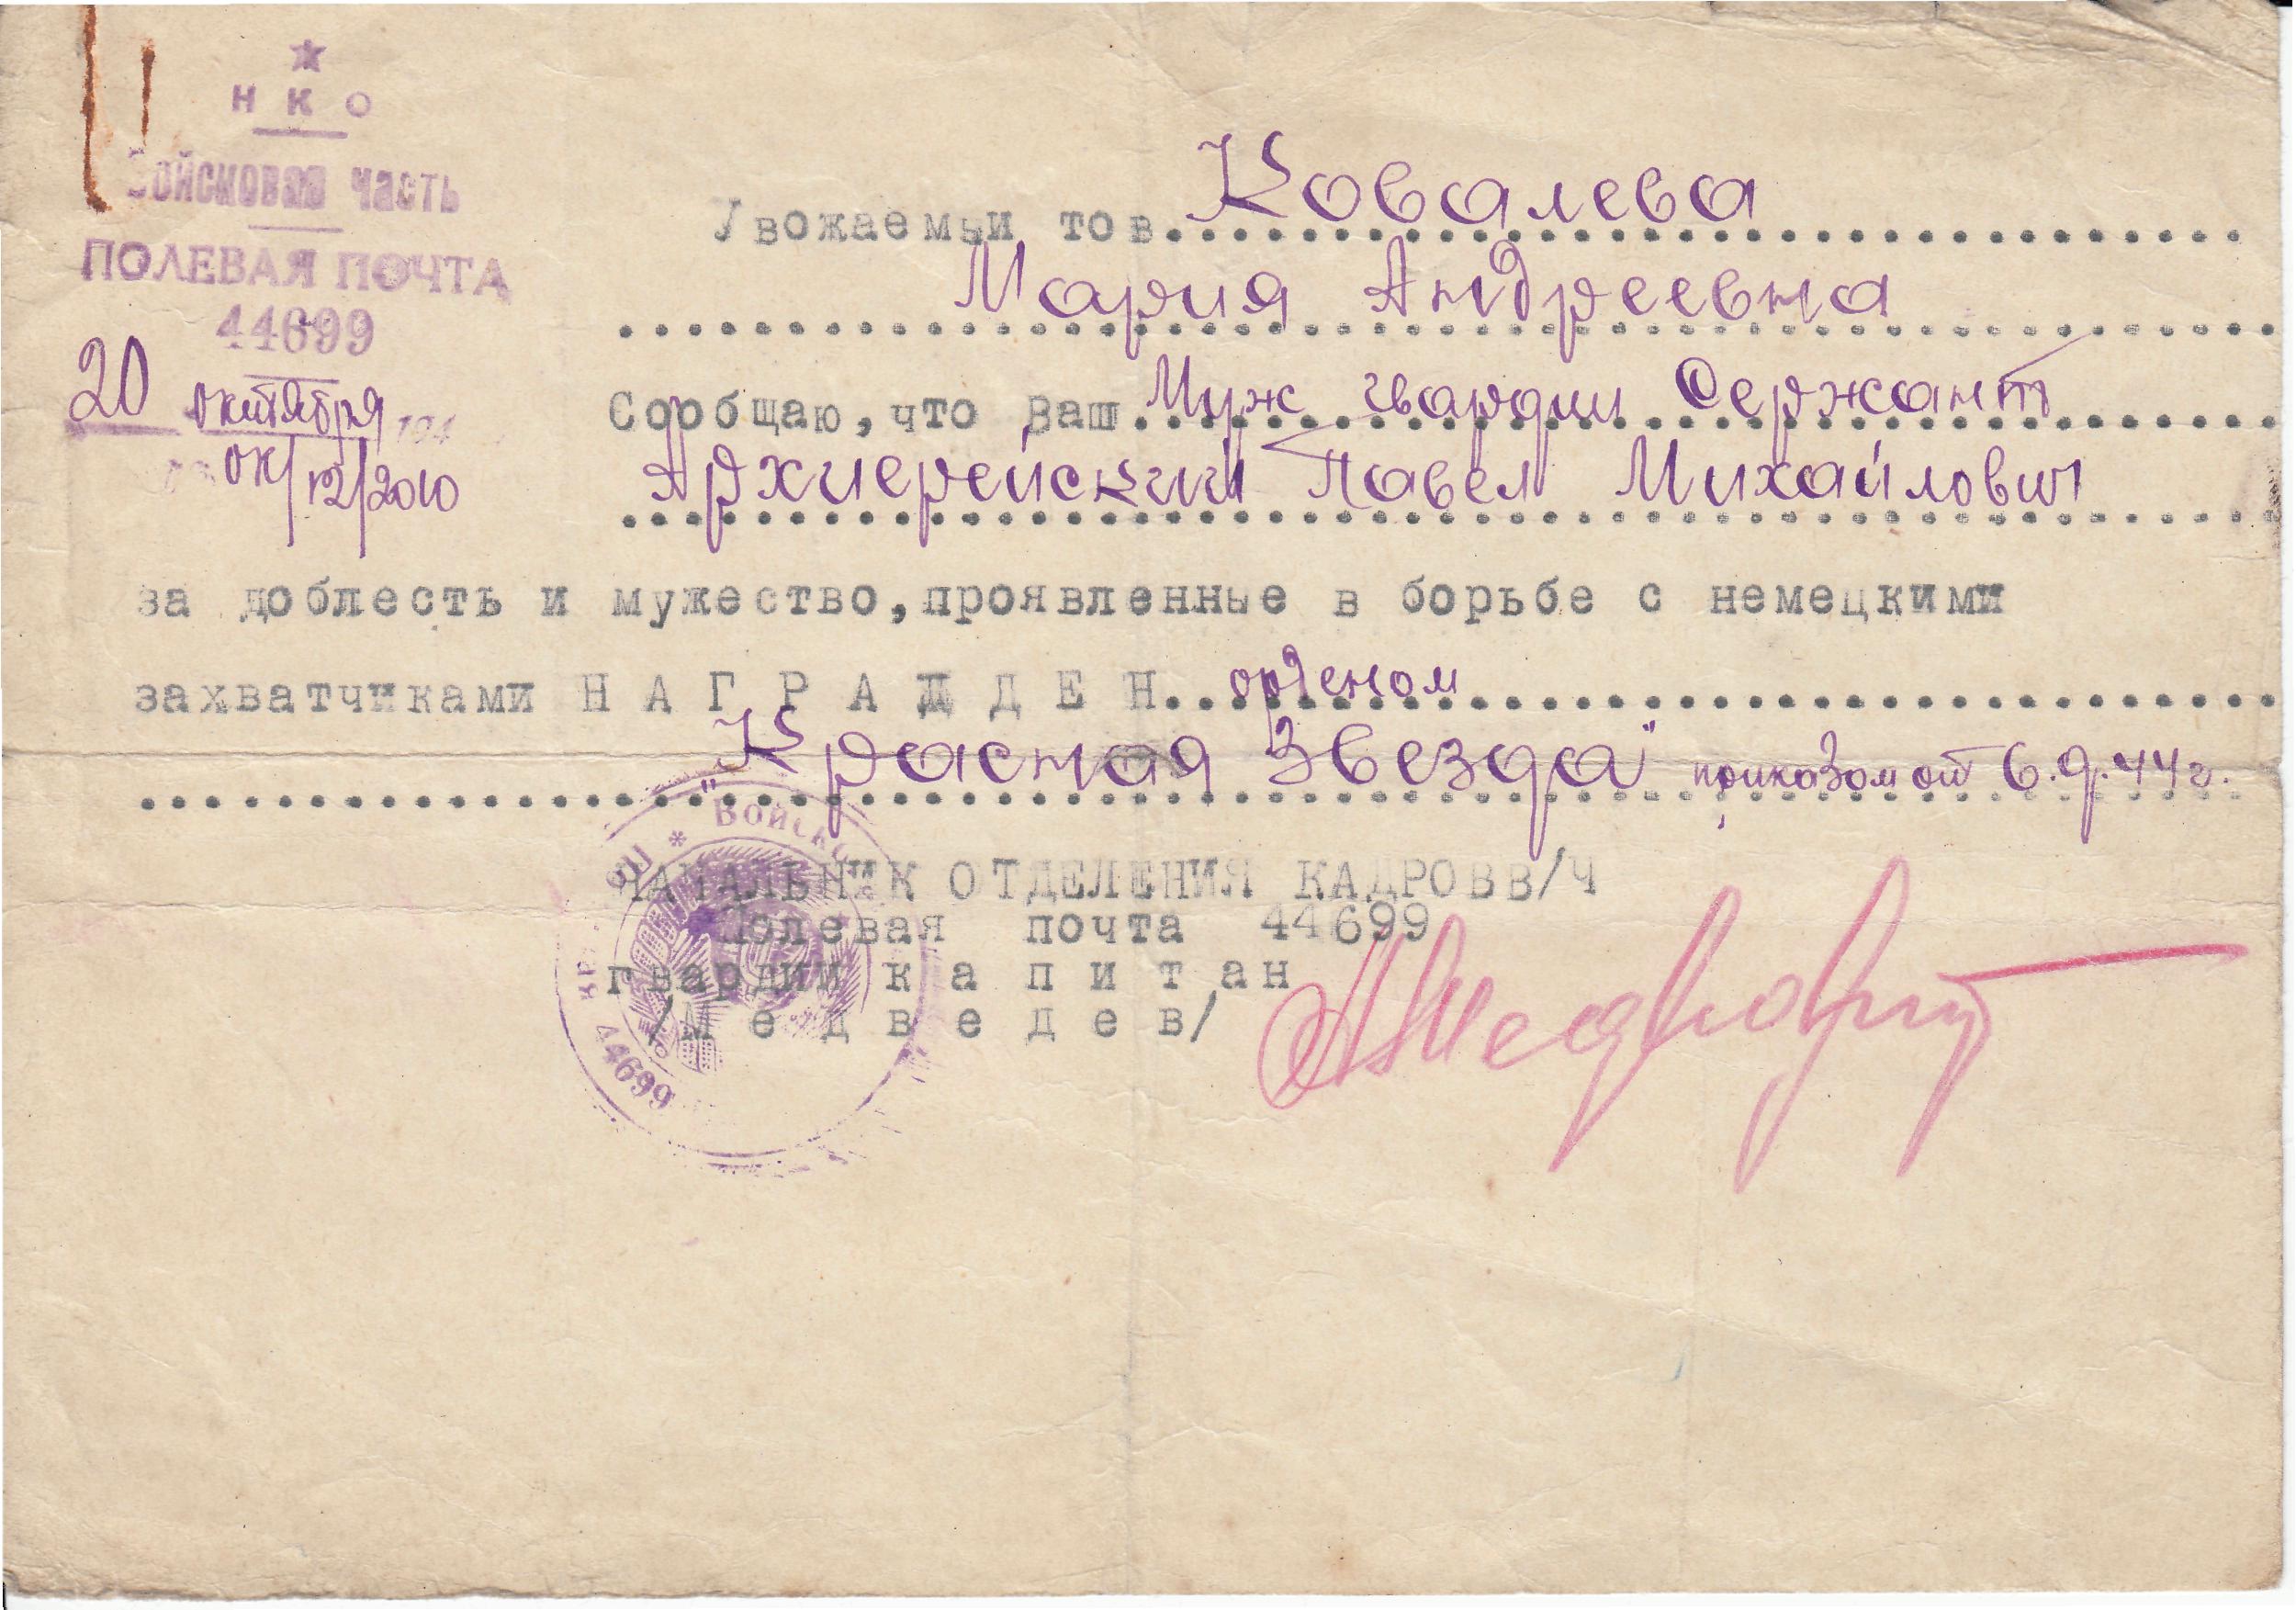 Н К О
Войсковая часть
ПОЛЕВАЯ ПОЧТА
44699
20 октября 194
ОК/12/2010
Увожаемыи тов. Ковалева
Мария Андреевна
Сообщаю, что Ваш Муж гвардии Сержант
Архиерейский Павел Михайлович
за доблесть и мужество, проявленные в борьбе с немецкими
захватчиками Н А Г Р А Ж Д Е Н орденом
"Красная Звезда" приказом от 6.9.44г.
НАЧАЛЬНИК ОТДЕЛЕНИЯ КАДРОВ В/Ч
Полевая почта 44699
гвардии к а п и т а н
/М е д в е д е в/
* Войско
44699